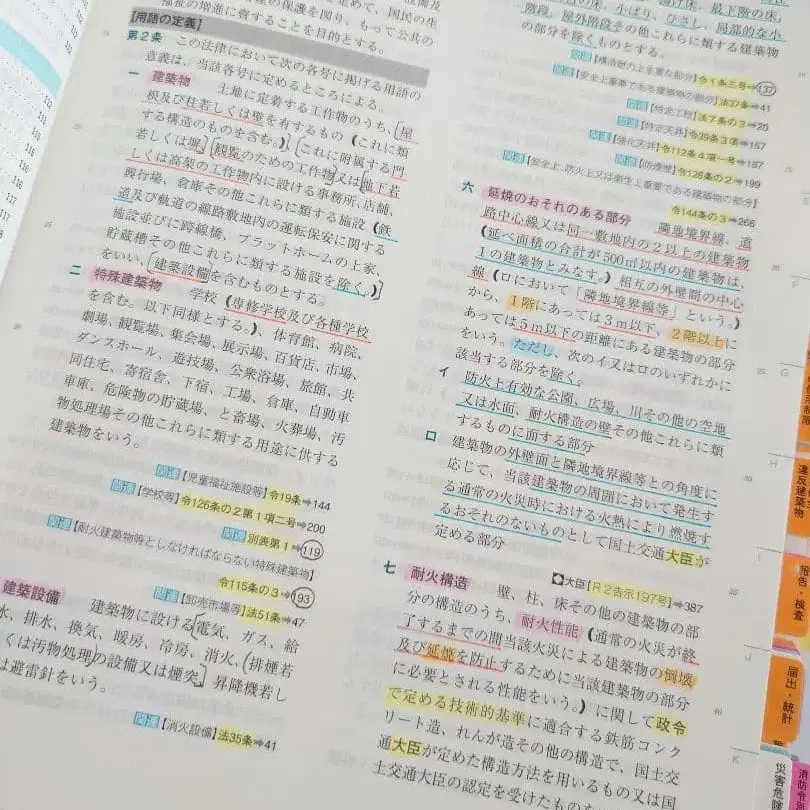 福祉の増進に資することを目的とする。
[用語の定義]
第2条 この法律において次の各号に掲げる用語の
意義は、当該各号に定めるところによる。
一 建築物 土地に定着する工作物のうち、屋
根及び柱若しくは壁を有するもの(これに類
する構造のものを含む。)、これに附属する門
若しくは塀、観覧のための工作物又は地下若
しくは高架の工作物内に設ける事務所、店舗、
興行場、倉庫その他これらに類する施設(鉄
道及び軌道の線路敷地内の運転保安に関する
施設並びに跨線橋、プラットホームの上家、
貯蔵槽その他これらに類する施設を除く。)
をいい、建築設備を含むものとする。
二 特殊建築物 学校(専修学校及び各種学校
を含む。以下同様とする。)、体育館、病院、
劇場、観覧場、集会場、展示場、百貨店、市場、
ダンスホール、遊技場、公衆浴場、旅館、共
同住宅、寄宿舎、下宿、工場、倉庫、自動車
車庫、危険物の貯蔵場、と畜場、火葬場、汚
物処理場その他これらに類する用途に供する
建築物をいう。
関連【児童福祉施設等】令19条➡144
関連【学校等】令126条の2第1項二号➡200
関連 別表第1➡119
関連【耐火建築物等としなければならない特殊建築物】
令115条の3➡193
関連【卸売市場等】法51条➡47
建築設備 建築物に設ける電気、ガス、給
水、排水、換気、暖房、冷房、消火、排煙若
くは汚物処理の設備又は煙突、昇降機若し
は避雷針をいう。
関連【消火設備】法35条➡41
階段、屋外階段その他これらに類する建築物
の部分を除くものとする。
関連【構造耐力上主要な部分】令1条三号➡137
関連【安全上重要である建築物の部分】法37条➡41
関連【特定工程】法7条の3➡20
関連【特定天井】令39条3項➡157
関連【強化天井】令112条4項一号➡187
関連【防煙壁】令126条の2➡199
関連【安全上、防火上又は衛生上重要である建築物の部分】
令144条の3➡266
六 延焼のおそれのある部分 隣地境界線、道
路中心線又は同一敷地内の2以上の建築物
(延べ面積の合計が500㎡以内の建築物は、
1の建築物とみなす。)相互の外壁間の中心
線(ロにおいて「隣地境界線等」という。)
から、1階にあっては3m以下、2階以上に
あっては5m以下の距離にある建築物の部分
をいう。ただし、次のイ又はロのいずれかに
該当する部分を除く。
イ 防火上有効な公園、広場、川その他の空地
又は水面、耐火構造の壁その他これらに類
するものに面する部分
ロ 建築物の外壁面と隣地境界線等との角度に
応じて、当該建築物の周囲において発生す
る通常の火災時における火熱により燃焼す
るおそれのないものとして国土交通大臣が
定める部分
大臣【R2告示197号】➡387
七 耐火構造 壁、柱、床その他の建築物の部
分の構造のうち、耐火性能(通常の火災が終
了するまでの間当該火災による建築物の倒壊
及び延焼を防止するために当該建築物の部分
に必要とされる性能をいう。)に関して政令
で定める技術的基準に適合する鉄筋コンク
リート造、れんが造その他の構造で、国土交
通大臣が定めた構造方法を用いるもの又は国
土交通大臣の認定を受けたもの
違反建築物
報告・検査
届出・統計
災害危険
消防令別